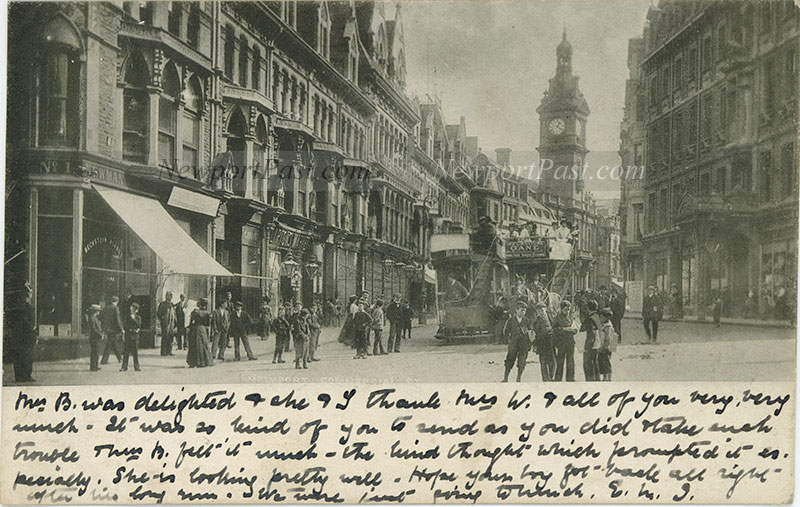 NewportPast.com
NewportPast.com
NewportPast.com
NewportPast.com
NewportPast.com
Mrs B. was delighted & she & I thank Mrs W. & all of you very, very
much - It was so kind of you to send as you did & take such
trouble Mrs B. felt it much - the kind thought which prompted it es-
pecially. She is looking pretty well. - Hope your boy got back all right
after his long run. - We were just going to which. E. M. J.